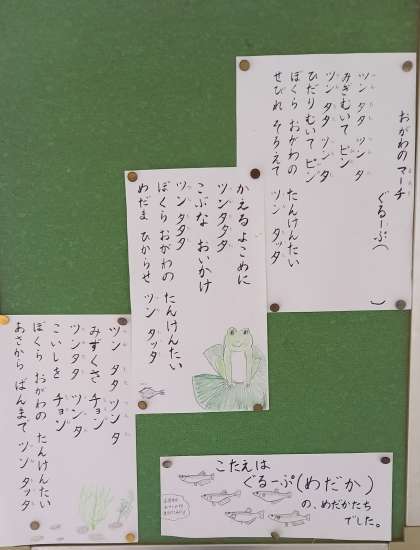 おがわの マーチ
ぐるーぷ(　　)
ツン タタ ツン タ
みぎむいて ピン
ツン タタ ツン タ
ひだりむいて ピン
ぼくら おがわの たんけんたい
せびれ そろえて ツン タッタ
かえるよこめに
ツン タタタ
こぶな おいかけ
ツン タタタ
ぼくら おがわの たんけんたい
めだま ひからせ ツン タッタ
ツン タタ ツン タ
みずくさ チョン
ツン タタ ツン タ
こいしを チョン
ぼくら おがわの たんけんたい
あさから ばんまで ツン タッタ
こたえは
ぐるーぷ(めだか)
の、めだかたち
でした。